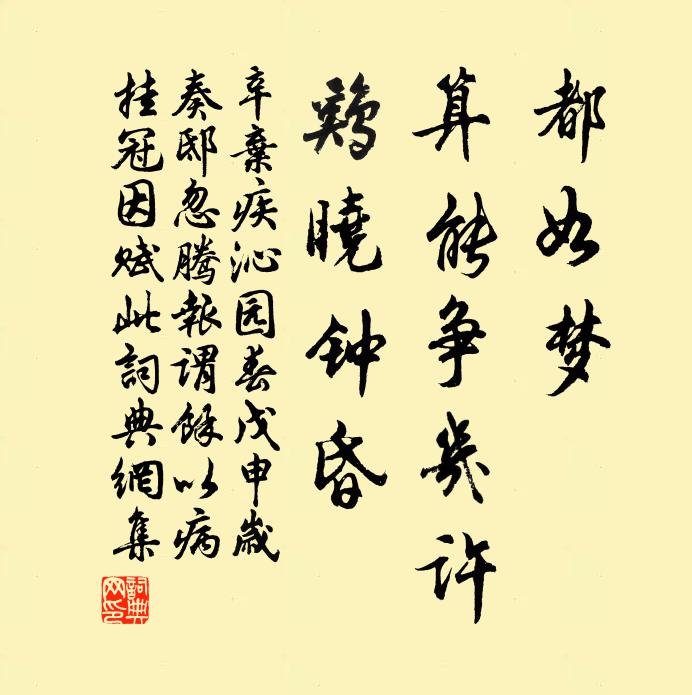 都如梦
算能争几许
鷄晓钟昏
辛棄疾沁园春戊申歲
奏邸忽腾報谓餘以病
挂冠因赋此詞典網集
詞典网印